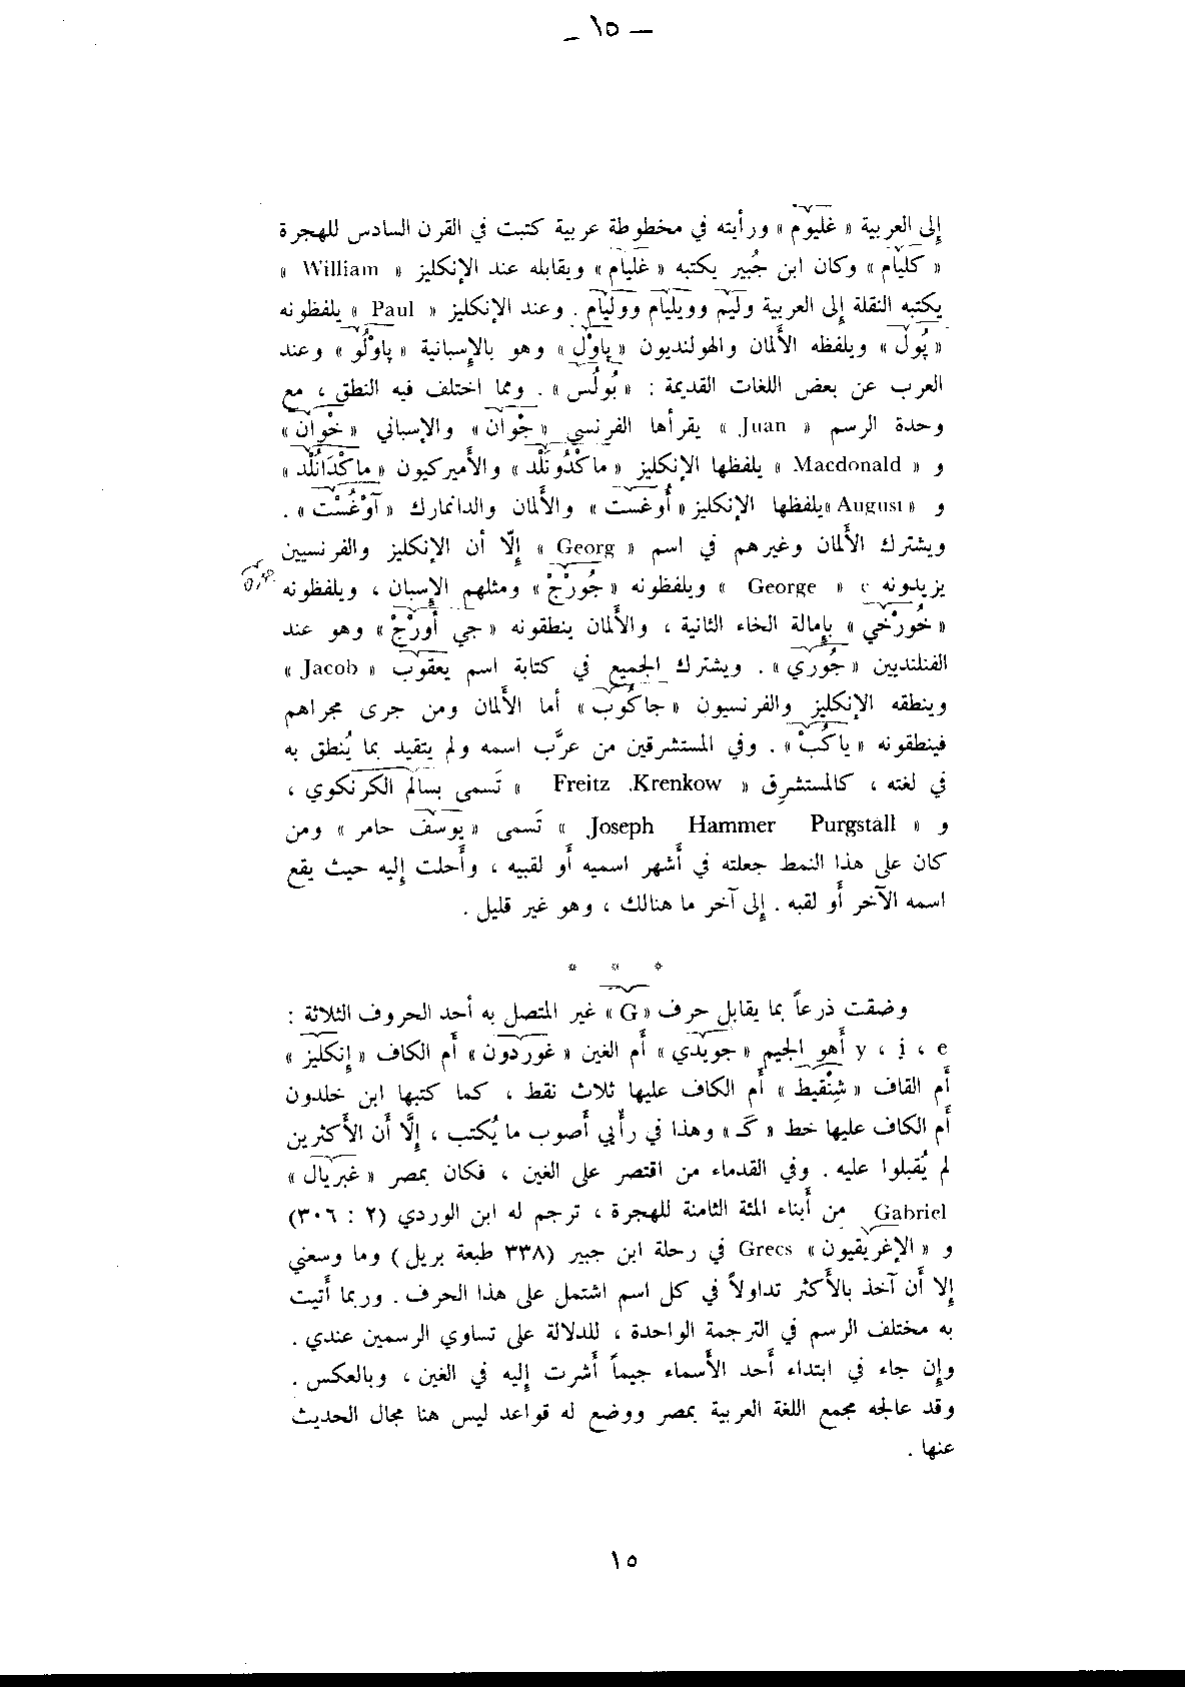 — ١٥ —
إلى العربية « غليوم » ورأيته في مخطوطة عربية كتبت في القرن السادس للهجرة
« كليام » وكان ابن جُبير يكتبه « غليام » ويقابله عند الإنكليز « William »
يكتبه النقلة إلى العربية وليم وويليام ووليام . وعند الإنكليز « Paul » يلفظونه
« پُول » ويلفظه الألمان والهولنديون « پاوْل » وهو بالإسبانية « پاوْلُو » وعند
العرب عن بعض اللغات القديمة : « بُولُس » . ومما اختلف فيه النطق ، مع
وحدة الرسم « Juan » يقرأها الفرنسي « جْوان » والإسباني « خْوان »
و « Macdonald » يلفظها الإنكليز « ماكْدُونَلْد » والأميركيون « ماكْدَانُلْد »
و « August » يلفظها الإنكليز « أُوغَست » والألمان والدانمارك « آوْغُسْت » .
ويشترك الألمان وغيرهم في اسم « Georg » إلّا أن الإنكليز والفرنسيين
يزيدونه e « George » ويلفظونه « جُورْجْ » ومثلهم الإسبان ، ويلفظونه
« خُورْخي » بإمالة الخاء الثانية ، والألمان ينطقونه « جي أورْجْ » وهو عند
الفنلنديين « جُوري » . ويشترك الجميع في كتابة اسم يعقوب « Jacob »
وينطقه الإنكليز والفرنسيون « جاكُوب » أما الألمان ومن جرى مجراهم
فينطقونه « ياكُبْ » . وفي المستشرقين من عرَّب اسمه ولم يتقيد بما يُنطق به
في لغته ، كالمستشرِق « Freitz .Krenkow » تَسمى بسالم الكرنكوي ،
و « Joseph Hammer Purgstall » تَسمى « يوسف حامر » ومن
كان على هذا النمط جعلته في أشهر اسميه أو لقبيه ، وأحلت إليه حيث يقع
اسمه الآخر أو لقبه . إلى آخر ما هنالك ، وهو غير قليل .
* * *
وضقت ذرعاً بما يقابل حرف « G » غير المتصل به أحد الحروف الثلاثة :
y ، i ، e أهو الجيم « جويدي » أم الغين « غوردون » أم الكاف « إنكليز »
أم القاف « شِنْقيط » أم الكاف عليها ثلاث نقط ، كما كتبها ابن خلدون
أم الكاف عليها خط « گـ » وهذا في رأيي أصوب ما يُكتب ، إلَّا أن الأكثرين
لم يُقبلوا عليه . وفي القدماء من اقتصر على الغين ، فكان بمصر « غبريال »
Gabriel من أبناء المئة الثامنة للهجرة ، ترجم له ابن الوردي (٢ : ٣٠٦)
و « الإغريقيون » Grecs في رحلة ابن جبير (٣٣٨ طبعة بريل) وما وسعني
إلا أن آخذ بالأكثر تداولاً في كل اسم اشتمل على هذا الحرف . وربما أتيت
به مختلف الرسم في الترجمة الواحدة ، للدلالة على تساوي الرسمين عندي .
وإن جاء في ابتداء أحد الأسماء جيماً أشرت إليه في الغين ، وبالعكس .
وقد عالجه مجمع اللغة العربية بمصر ووضع له قواعد ليس هنا مجال الحديث
عنها .
١٥